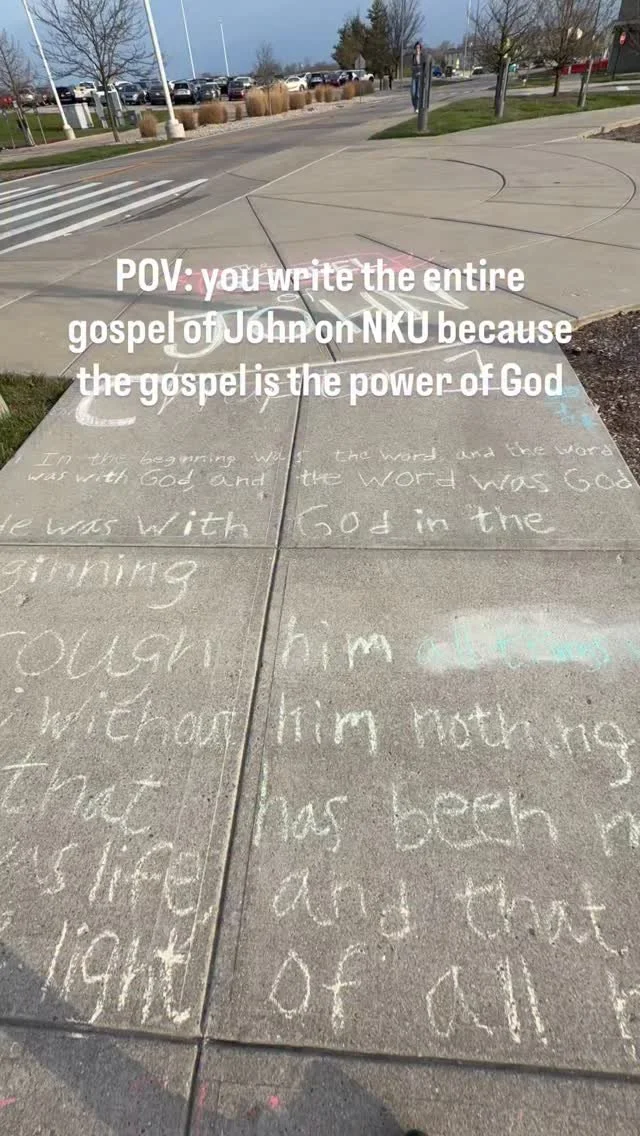 POV: you write the entire
gospel of John on NKU because
the gospel is the power of God
JOHN
In the beginning was the word and the word
was with God, and the word was God
He was with God in the
ginning
rough him all things
without him nothing
that has been
life and that
light of all